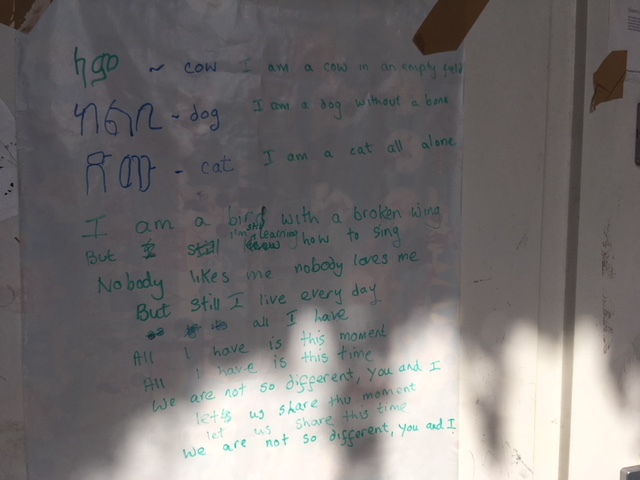 ~ cow I am a cow in an empty field
- dog I am a dog without a bone
- cat I am a cat all alone
I am a bird with a broken wing
But still I'm still learning how to sing
Nobody likes me nobody loves me
But still I live every day
all I have
All I have is this moment
All I have is this time
We are not so different, you and I
let us share this moment
let us share this time
We are not so different, you and I